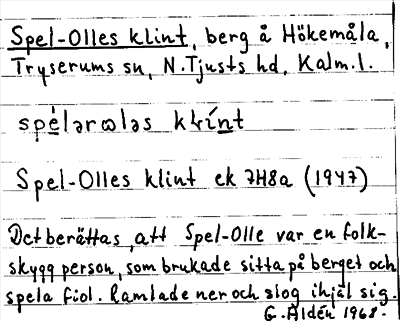 Spel-Olles klint, berg å Hökemåla,
Tryserums sn, N.Tjusts hd, Kalm.l.
Spel-Olles klint ek 7H8a (1947)
Det berättas att Spel-Olle var en folk-
skygg person, som brukade sitta på berget och
spela fiol. Ramlade ner och slog ihjäl sig.
G. Aldén 1968.